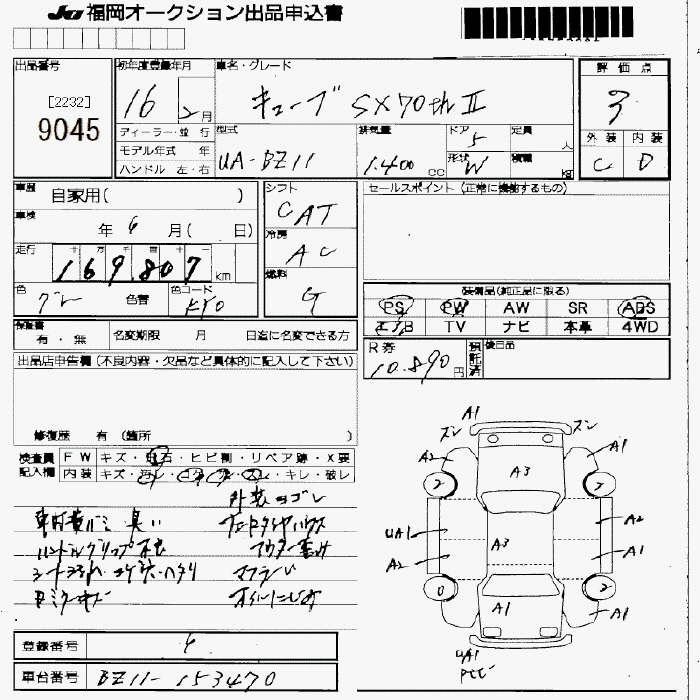 JU 福岡オークション出品申込書
出品番号
[2232]
9045
初年度登録年月
16 2月
ディーラー・並行
モデル年式 年
ハンドル 左・右
車名・グレード
キューブ SX70th II
型式
UA-BZ11
排気量
1.400 cc
ドア
5
形状
W
定員
人
積載
kg
評価点
3
外装 内装
C D
車歴
自家用( )
車検
年 6 月( 日)
走行
169807 km
色
グレー
色替
カラーコード
KY0
シフト
CAT
冷房
AC
燃料
G
セールスポイント (正常に機能するもの)
装備品(純正品に限る)
PS PW AW SR ABS
エアB TV ナビ 本革 4WD
保証書
有・無
名変期限 月 日迄に名変できる方
R券
10.890円
預託済
後日品
出品店申告欄 (不良内容・欠品など具体的に記入して下さい)
修復歴 有 (箇所 )
検査員記入欄
FW キズ・飛石・ヒビ割・リペア跡・X要
内装 キズ・汚レ・コゲ・穴・スレ・キレ・破レ
外装ヨゴレ
臭い
マフラー
A1
ズレ ズレ
A2 A1
A3
2 2
UA1 A2
A3
A2 A1
0 2
A1
A1
UA1
登録番号
車台番号
BZ11-153470